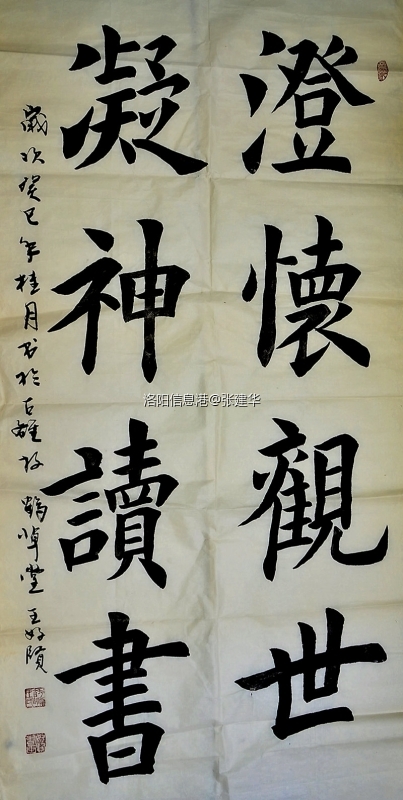 澄懷觀世
凝神讀書
歲次癸巳年桂月书於古雒故鹤堂王好賢
洛阳信息港@张建华